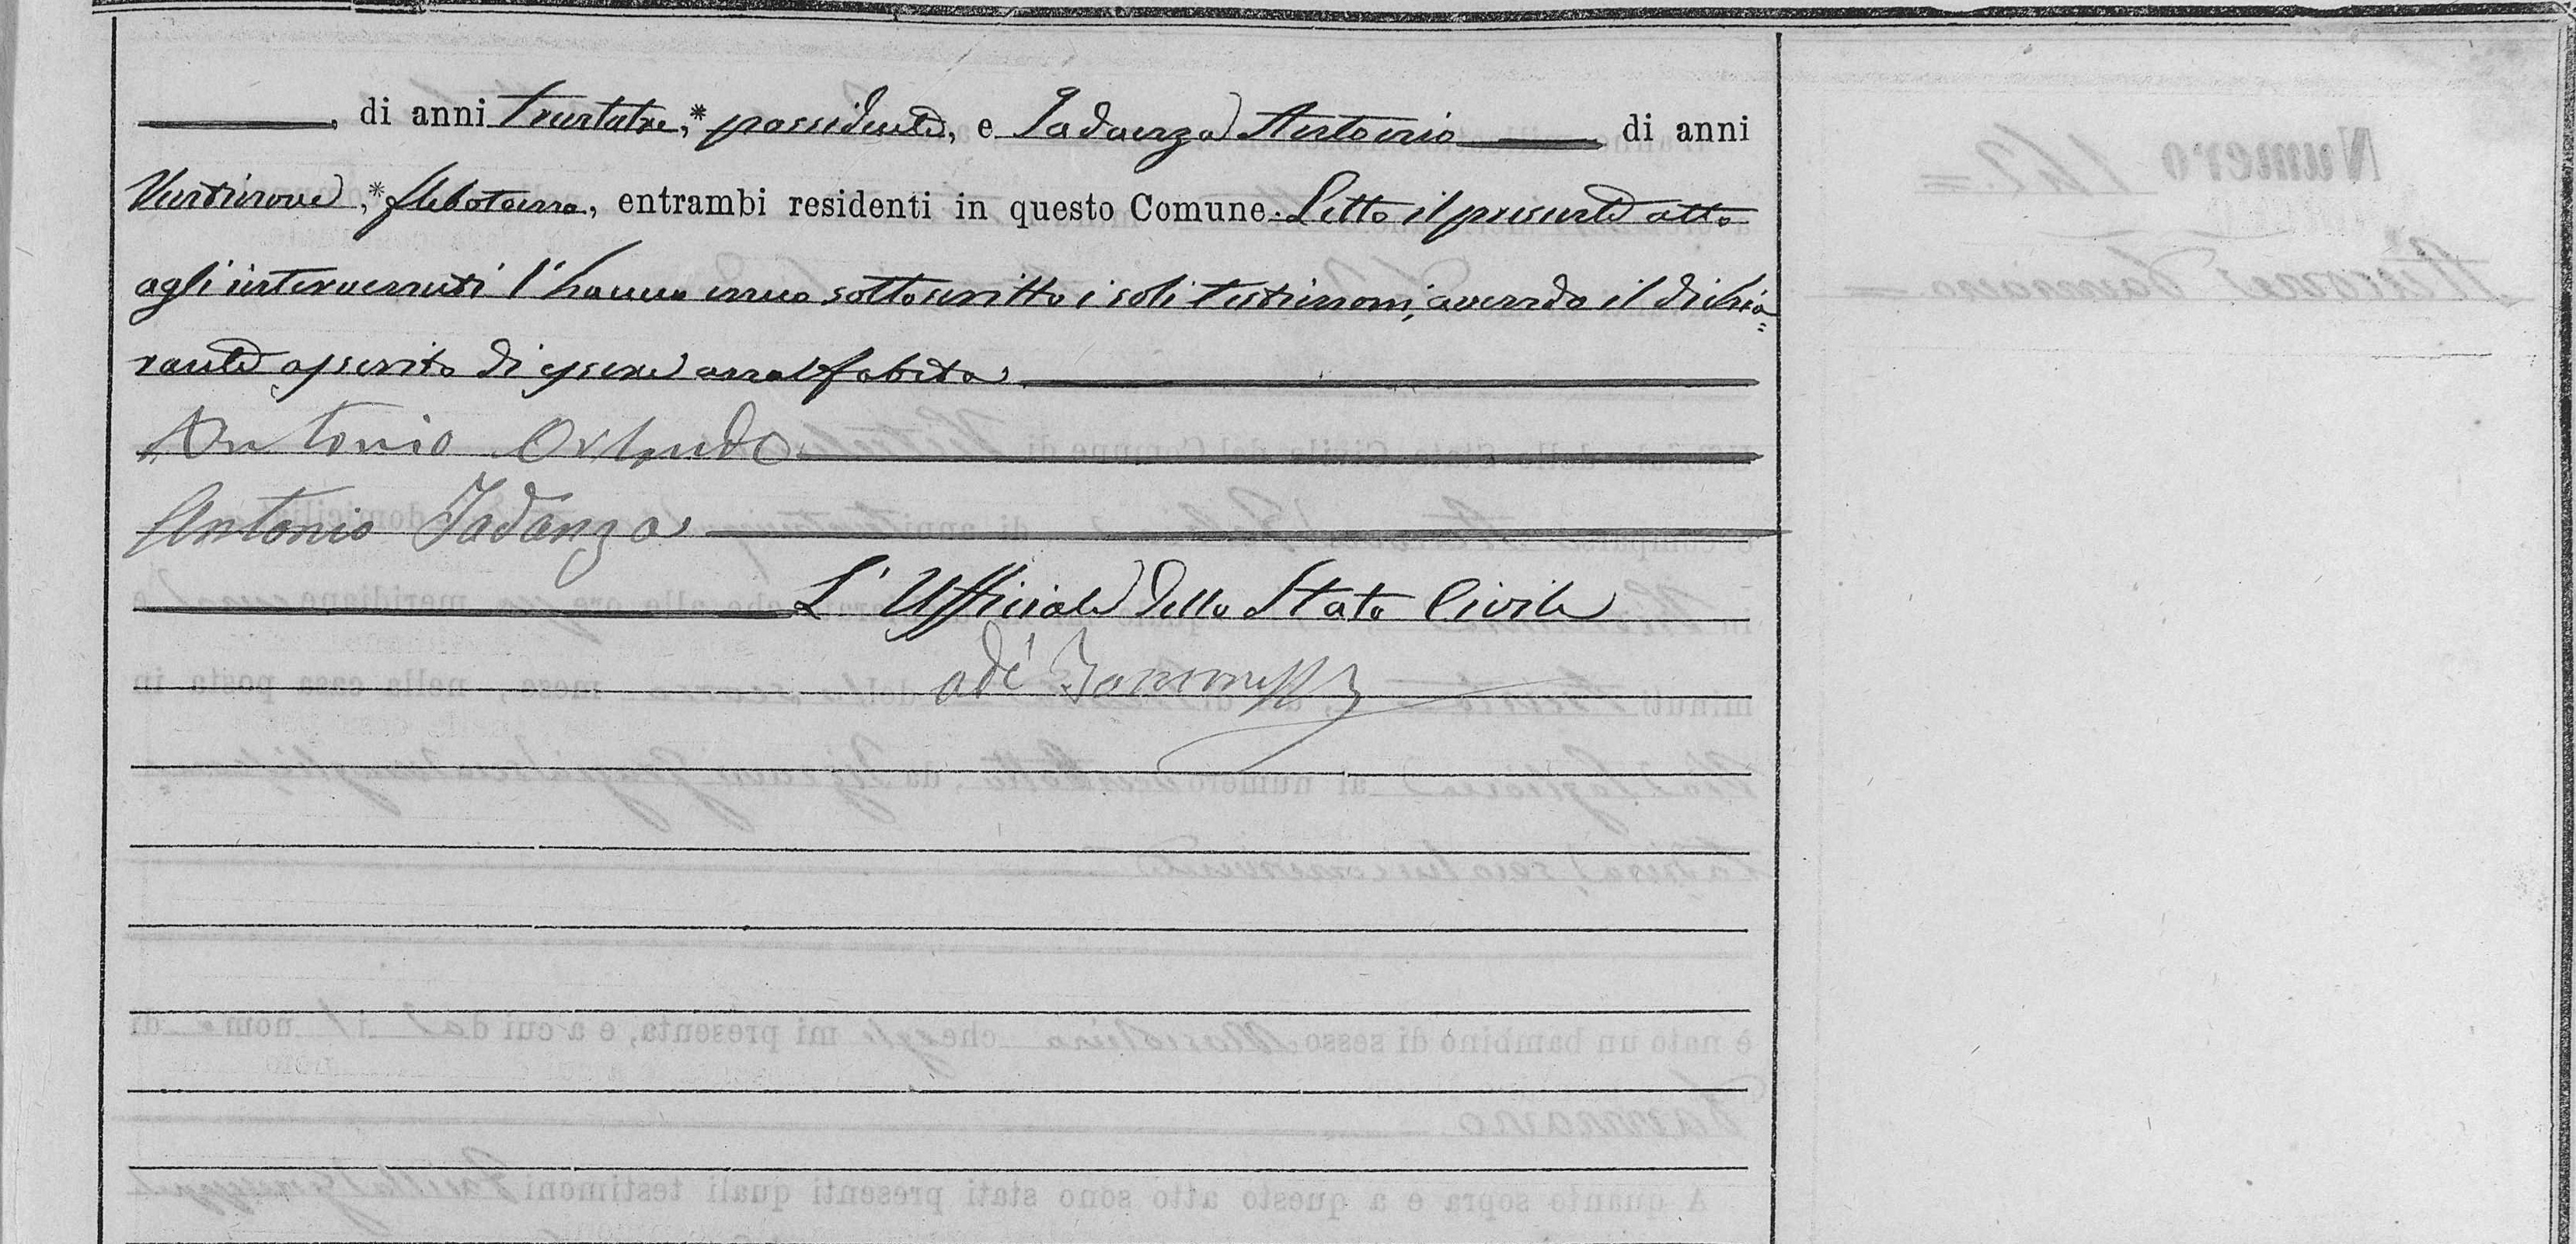 , di anni trentatre,* possidente, e Iadanza Antonio di anni
Ventinove,* flebotomo, entrambi residenti in questo Comune. Letto il presente atto
agli intervenuti l'hanno meco sottoscritto i soli testimoni, avendo il dichia=
rante asserito di essere analfabeta
Antonio Orlando
Antonio Iadanza
L'Ufficiale dello Stato Civile